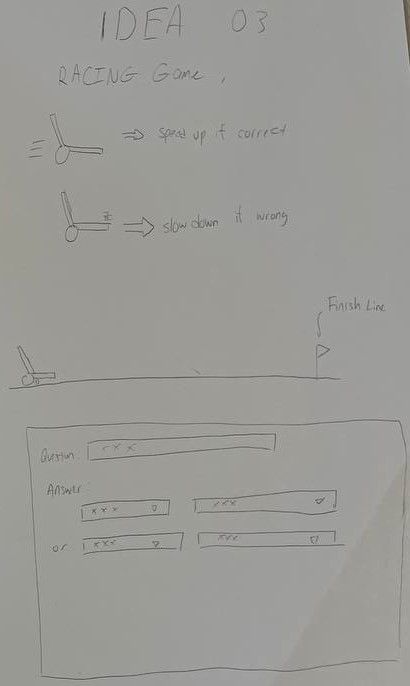 IDEA 03
RACING Game,
⇒ speed up if correct
z
⇒ slow down if wrong
Finish Line
Question: xxx
Answer:
xxx xxx
or xxx xxx